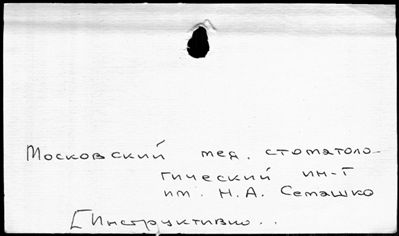 Московский мед. стоматоло-
гический ин-т
им. Н.А. Семашко
[Инструктивно..